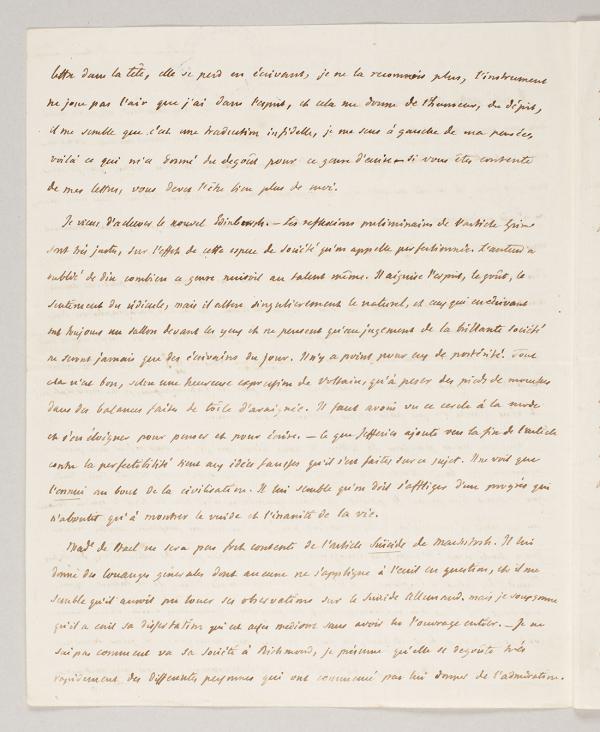 lettre dans la tête, elle se perd en écrivant, je ne la reconnois plus, l'instrument
ne joue pas l'air que j'ai dans l'esprit, et cela me donne de l'humeur, du dépit,
il me semble que c'est une traduction infidelle, je me sens à gauche de ma pensée,
voilà ce qui m'a donné du degoût pour ce genre d'écrire – si vous êtes contente
de mes lettres, vous devez l'être bien plus de moi.
Je viens d'achever le nouvel Edinburgh. – Les reflexions preliminaires de l'article Grim
sont très justes, sur l'effet de cette espece de société qu'on appelle perfectionnée. L'auteur a
oublié de dire combien ce genre nuisoit au talent même. Il aiguise l'esprit, le goût, le
sentiment du ridicule, mais il altere singulierement le naturel, et ceux qui en écrivant
ont toujours un sallon devant les yeux et ne pensent qu'au jugement de la brillante société
ne seront jamais que des écrivains du jour. Il n'y a point pour eux de postérité. Tout
cela n'est bon, selon une heureuse expression de Voltaire, qu'à peser des pieds de mouches
dans des balances faites de toile d'araignée. Il faut avoir vu ce cercle à la mode
et s'en éloigner pour penser et pour écrire. – Ce que Jefferies ajoute vers la fin de l'article
contre la perfectibilité tient aux idées fausses qu'il s'est faites sur ce sujet. Il ne voit que
l'ennui au bout de la civilisation. Il lui semble qu'on doit s'affliger d'un progrès qui
n'aboutit qu'à montrer le vuide et l'inanité de la vie.
Mad.e de Stael ne sera pas fort contente de l'article Suicide de Mackintosh. Il lui
donne des louanges generales dont aucune ne s'applique à l'écrit en question, et il me
semble qu'il auroit pu louer ses observations sur le suicide Allemand. mais je soupçonne
qu'il a écrit sa dissertation qui est assez mediocre sans avoir lu l'ouvrage entier. – Je ne
sais pas comment va sa société à Richmond, je présume qu'elle se degoûte très
rapidement des differentes personnes qui ont commencé par lui donner de l'admiration.